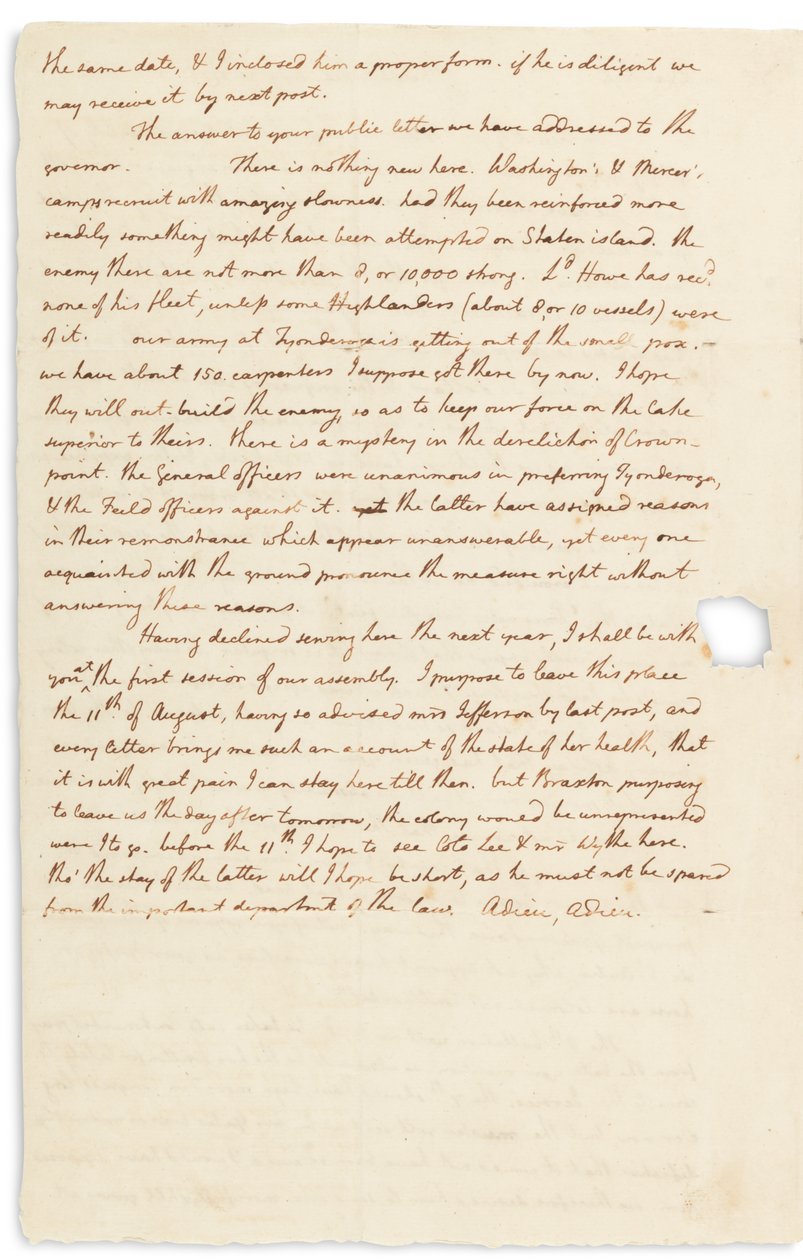 the same date, & I inclosed him a proper form. if he is diligent we
may receive it by next post.
The answer to your public letter we have addressed to the
governor. There is nothing new here. Washington's & Mercer's
camps recruit with amazing slowness. had they been reinforced more
readily something might have been attempted on Staten island. the
enemy there are not more than 8, or 10,000 strong. Ld. Howe has recd.
none of his fleet, unless some Highlanders (about 8, or 10 vessels) were
of it. our army at Tyonderoga is getting out of the small pox. —
we have about 150. carpenters I suppose got there by now. I hope
they will out-build the enemy, so as to keep our force on the lake
superior to theirs. there is a mystery in the dereliction of Crown-
point. the General officers were unanimous in preferring Tyonderoga,
& the Feild officers against it. yet the latter have assigned reasons
in their remonstrance which appear unanswerable, yet every one
acquainted with the ground pronounce the measure right without
answering these reasons.
Having declined serving here the next year, I shall be with
you at the first session of our assembly. I purpose to leave this place
the 11th. of August, having so advised mrs Jefferson by last post, and
every letter brings me such an account of the state of her health, that
it is with great pain I can stay here till then. but Braxton purposing
to leave us the day after tomorrow, the colony would be unrepresented
were I to go. before the 11th. I hope to see Colo Lee & mr Wythe here.
tho' the stay of the latter will I hope be short, as he must not be spared
from the important department of the law. Adieu, Adieu. —